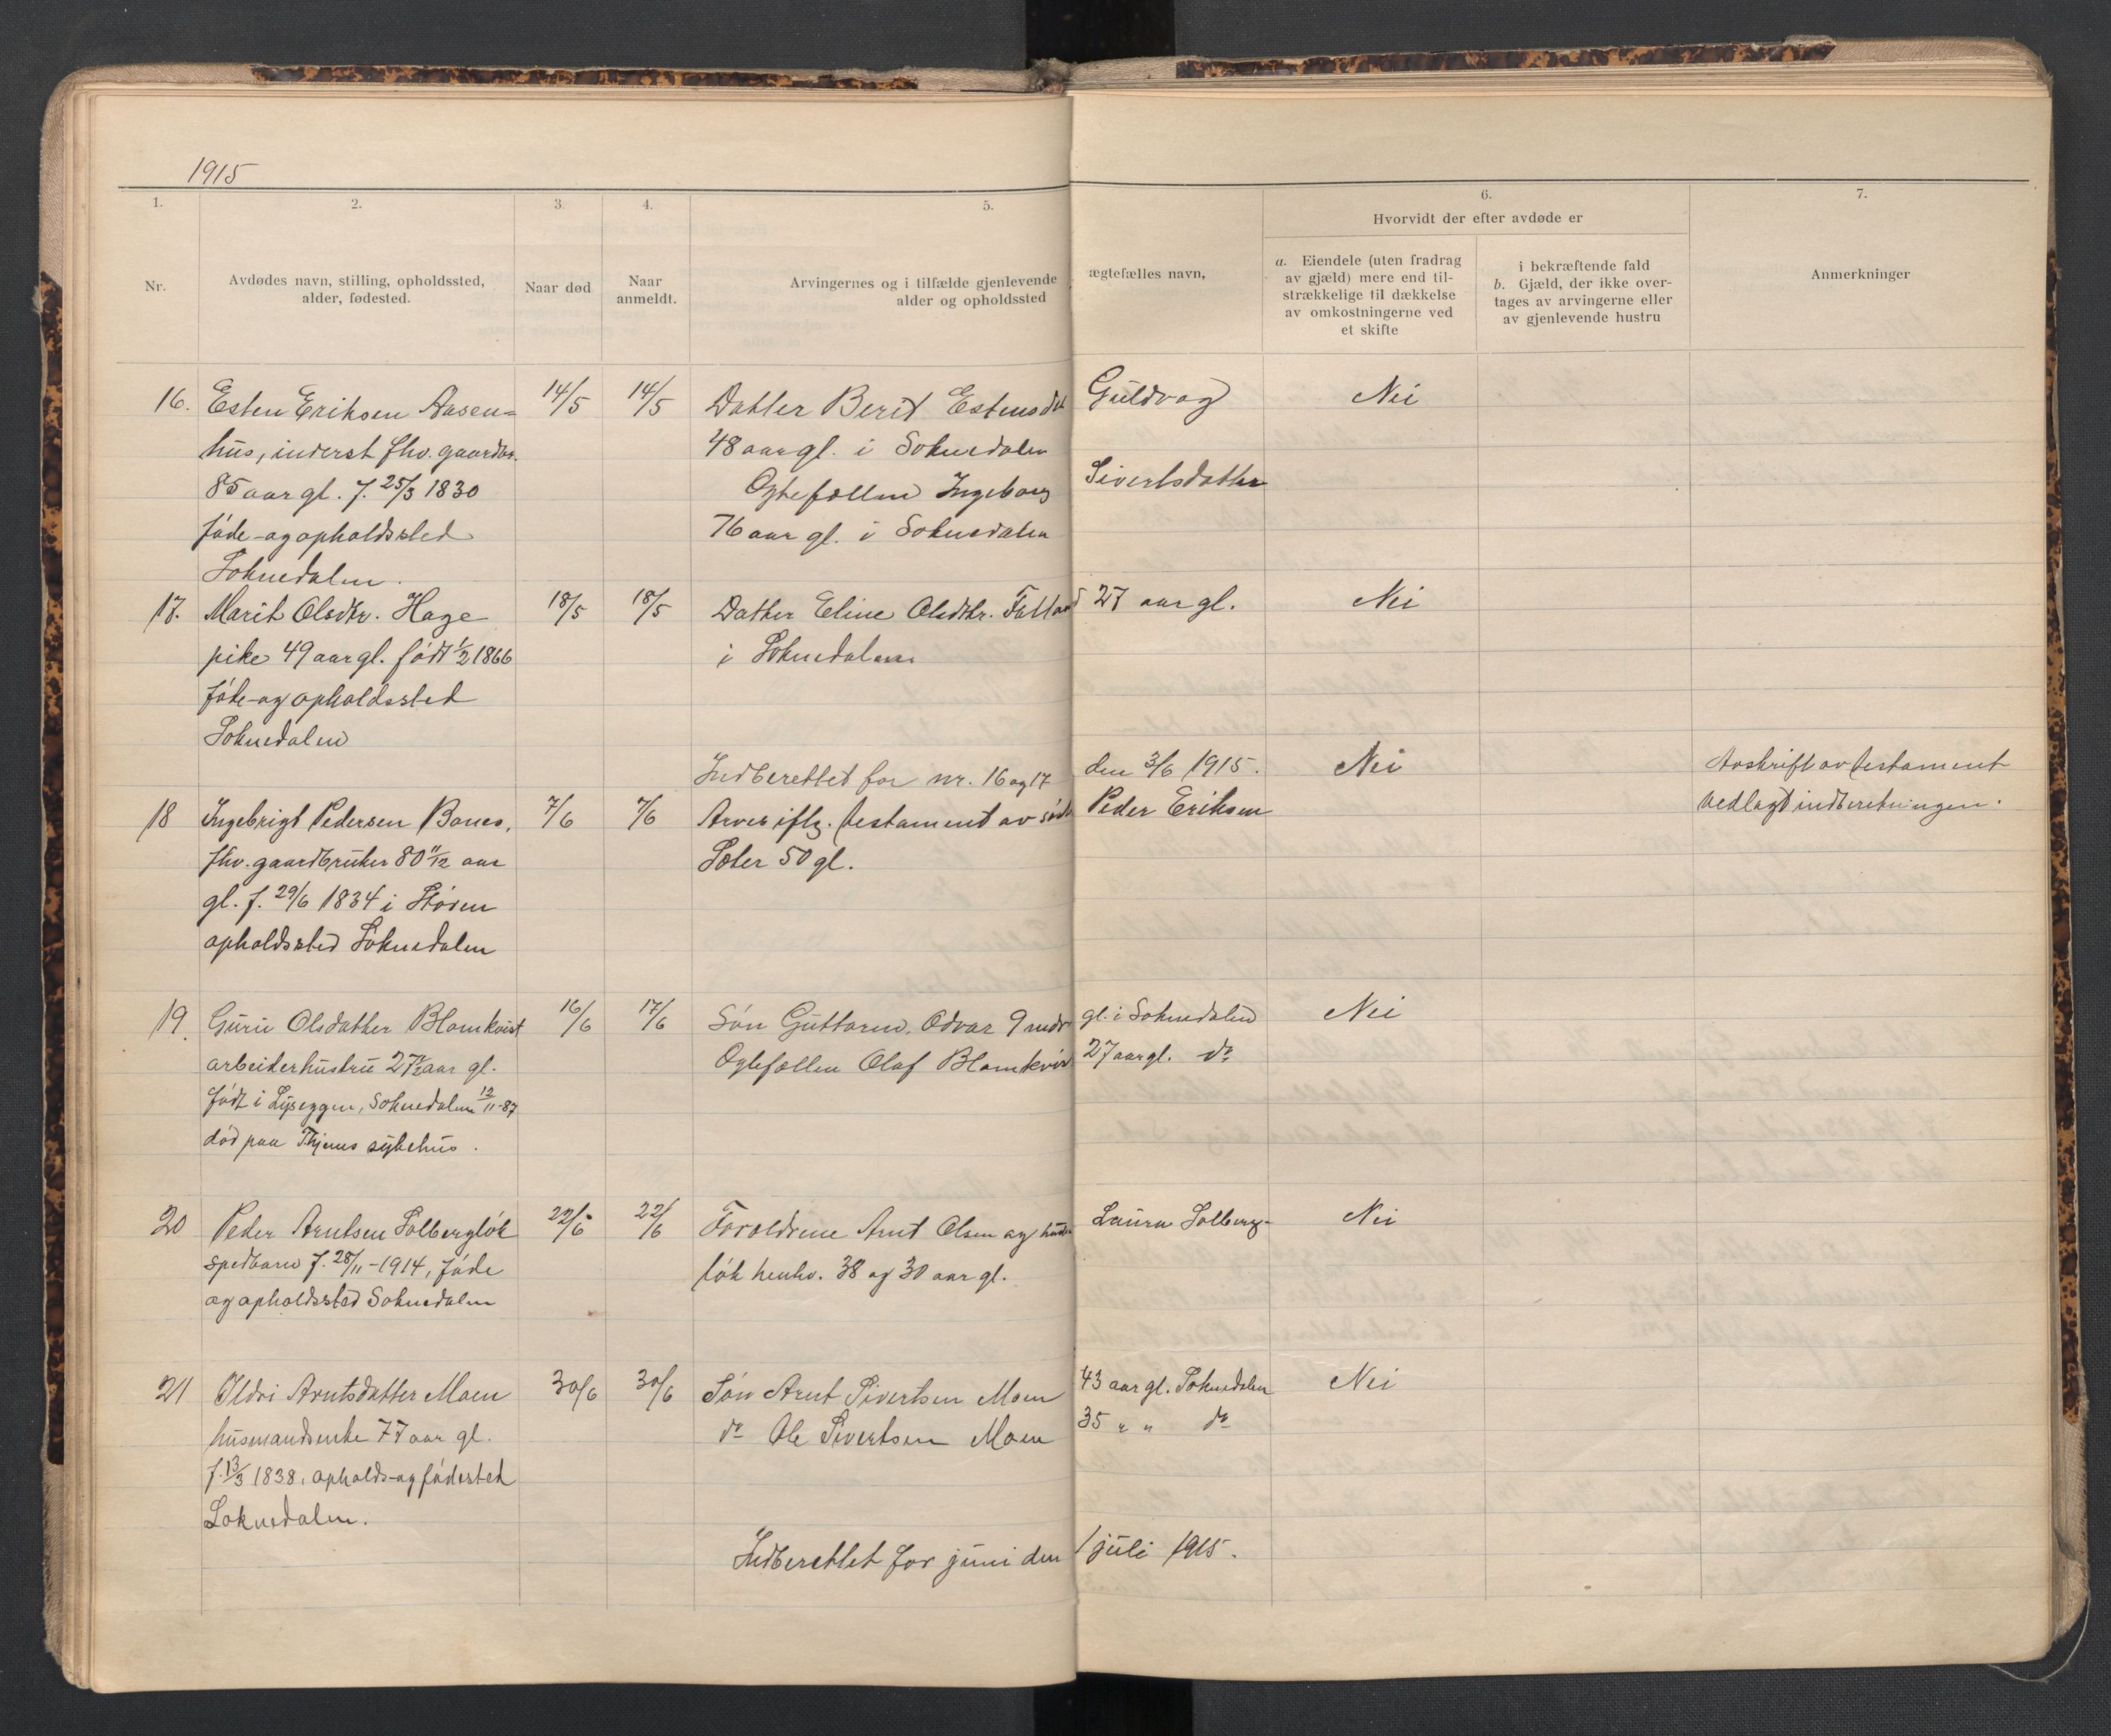 1915
1. 2. 3. 4. 5. 6. 7.
Hvorvidt der efter avdøde er
Nr.
Avdødes navn, stilling, opholdssted,
alder, fødested.
Naar død
Naar
anmeldt.
Arvingernes og i tilfælde gjenlevende ægtefælles navn,
alder og opholdssted
a. Eiendele (uten fradrag
av gjæld) mere end til-
strækkelige til dækkelse
av omkostningerne ved
et skifte
i bekræftende fald
b. Gjæld, der ikke over-
tages av arvingerne eller
av gjenlevende hustru
Anmerkninger
16. Esten Eriksen Aasen= 14/5 14/5 Datter Berit Estensdt Guldvog Nei
hus, inderst fhv. gaardbr. 48 aar gl. i Soknedalen
85 aar gl. f. 25/3 1830 Ogtefællen Ingeborg Sivertsdatter
føde- og opholdssted 76 aar gl. i Soknedalen
Soknedalen.
17. Marit Olsdtr. Hage 18/5 18/5 Datter Eline Olsdtr. 27 aar gl. Nei
pike 49 aar gl. født 1/2 1866 i Soknedalen
føde- og opholdssted
Soknedalen
Indberettet for nr. 16 og 17 den 3/6 1915. Nei Avskrift av testament
18 Ingebrigt Pedersen Bones, 7/6 7/6 Arves iflg. testament av Peder Eriksen vedlagt indberetningen.
fhv. gaardbruker 80 11/12 aar Soter 50 gl.
gl. f. 29/6 1834 i Støren
opholdssted Soknedalen
19. Guru Olsdatter Blomkvist 16/6 17/6 Søn Guttorm Odvar 9 mdr gl. i Soknedalen Nei
arbeiderhustru 27 aar gl. Ogtefællen Olaf Blomkvist 27 aar gl. do
født i Lyseggen, Soknedalen 12/11-87
død paa Thjems sykehus.
20 Peder Arntsen Solbergløk 22/6 22/6 Forældrene Arnt Olsen og Laura Solberg-
Nei
spedbarn f. 28/11-1914, føde løk henhv. 38 og 30 aar gl.
og opholdssted Soknedalen
21 Ildri Arntsdatter Moen 30/6 30/6 Søn Arnt Sivertsen Moen 43 aar gl. Soknedalen Nei
husmandsenke 77 aar gl. do Ole Sivertsen Moen 35 " " do
f. 13/3 1838, opholds- og fødested
Soknedalen.
Indberettet for juni den 1 juli 1915.